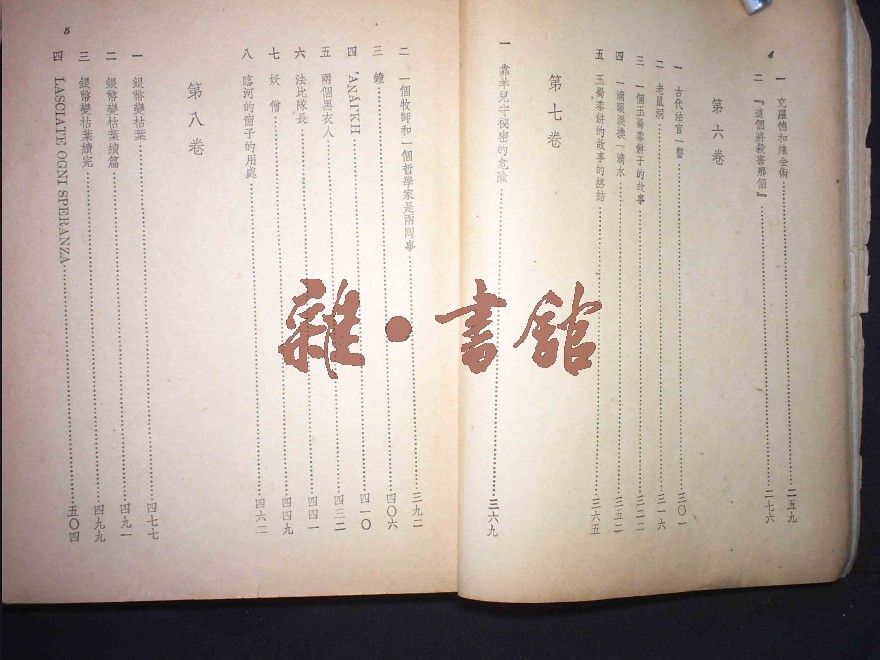 4
一 克羅德和煉金術 二五九
二 『這個將殺害那個』 二七六
第六卷
一 古代法官一瞥 三〇一
二 老鼠洞 三一六
三 一個玉蜀黍餅子的故事 三二二
四 一滴眼淚換一滴水 三五二
五 玉蜀黍餅的故事的終結 三六五
第七卷
一 靠羊兒守祕密的危險 三六九
5
二 一個牧師和一個哲學家是兩回事 三九二
三 鐘 四〇六
四 'ANÁΓKH 四一〇
五 兩個黑衣人 四三二
六 法比隊長 四四一
七 妖僧 四四九
八 臨河的窗子的用處 四六二
第八卷
一 銀幣變枯葉 四七七
二 銀幣變枯葉續篇 四九一
三 銀幣變枯葉續完 四九九
四 LASCIATE OGNI SPERANZA 五〇四
雜·書館